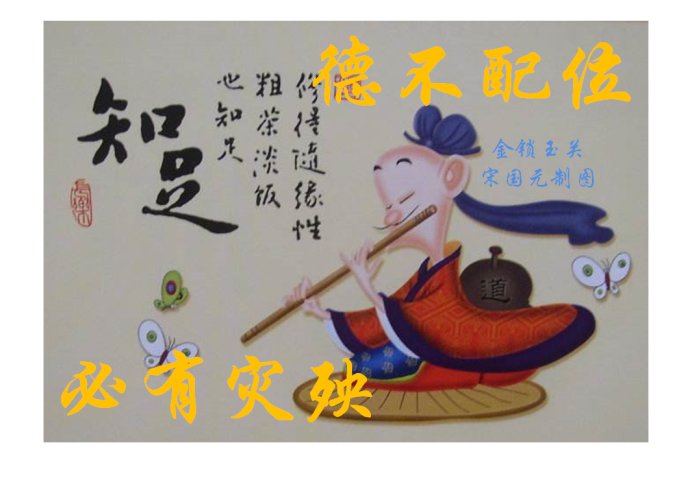 德不配位
金锁玉关
宋国元制图
修得随缘性
粗茶淡饭
也知足
知足
道
必有灾殃